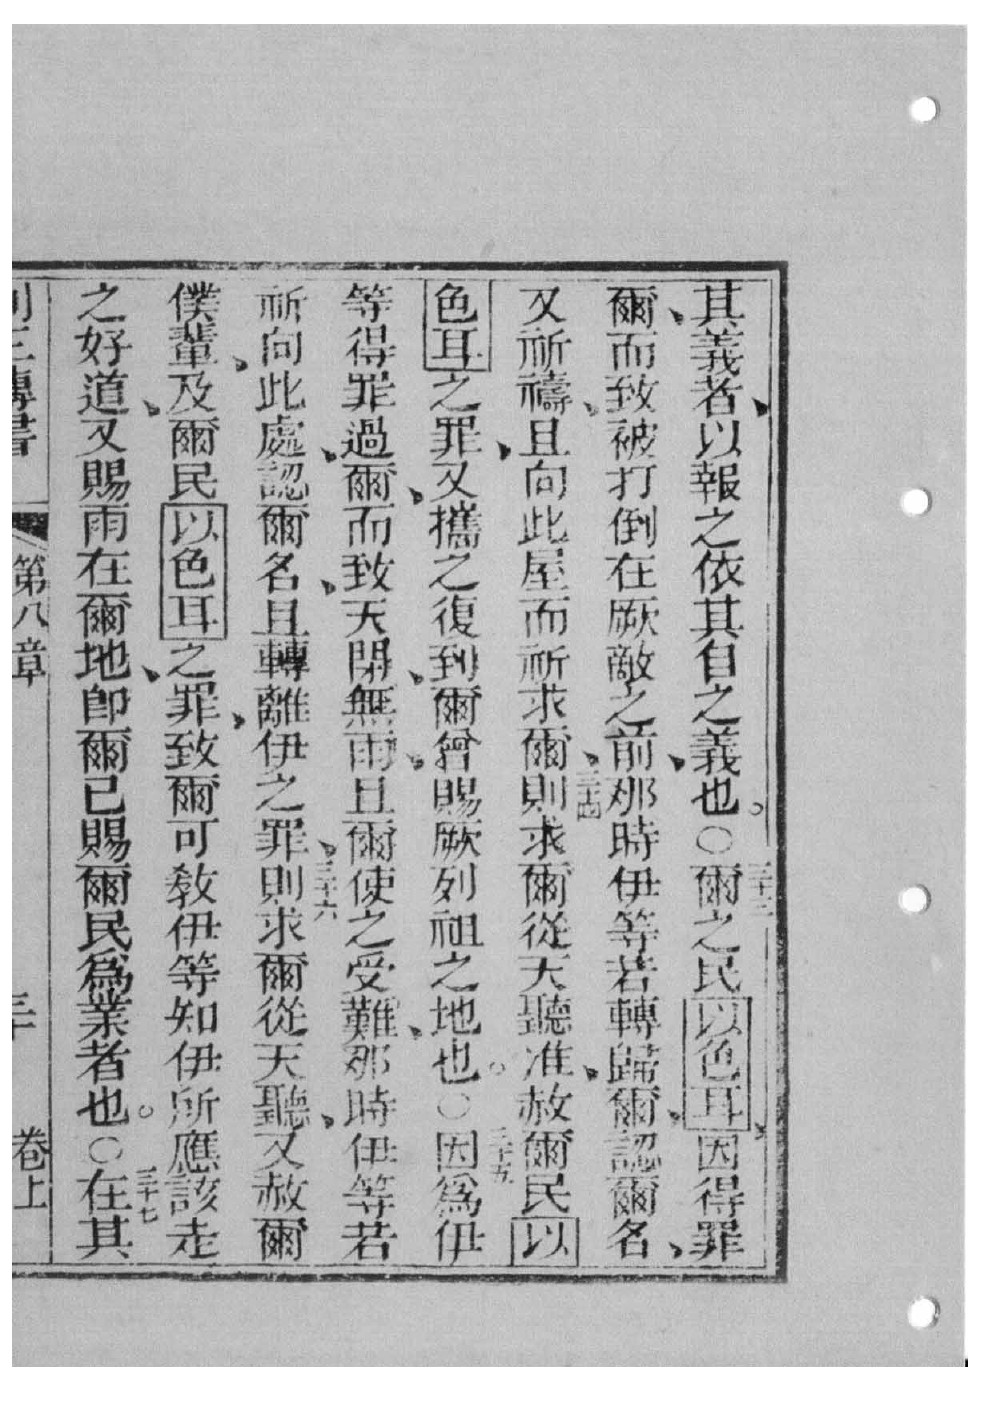 其義者、以報之依其自之義也。〇三十三爾之民以色耳、因得罪
爾、而致被打倒在厥敵之前、那時伊等若轉歸爾、認爾名、
又祈禱、且向此屋而祈求爾、三十四則求爾從天聽准、赦爾民以
色耳之罪、又攜之復到爾曾賜厥列祖之地也。〇三十五因爲伊
等得罪過爾、而致天閉、無雨、且爾使之受難、那時伊等若
祈向此處、認爾名、且轉離伊之罪、三十六則求爾從天聽、又赦爾
僕輩、及爾民以色耳之罪、致爾可教伊等知伊所應該走
之好道、又賜雨在爾地、卽爾已賜爾民爲業者也。〇三十七在其
列王傳書 第八章 三十 卷上